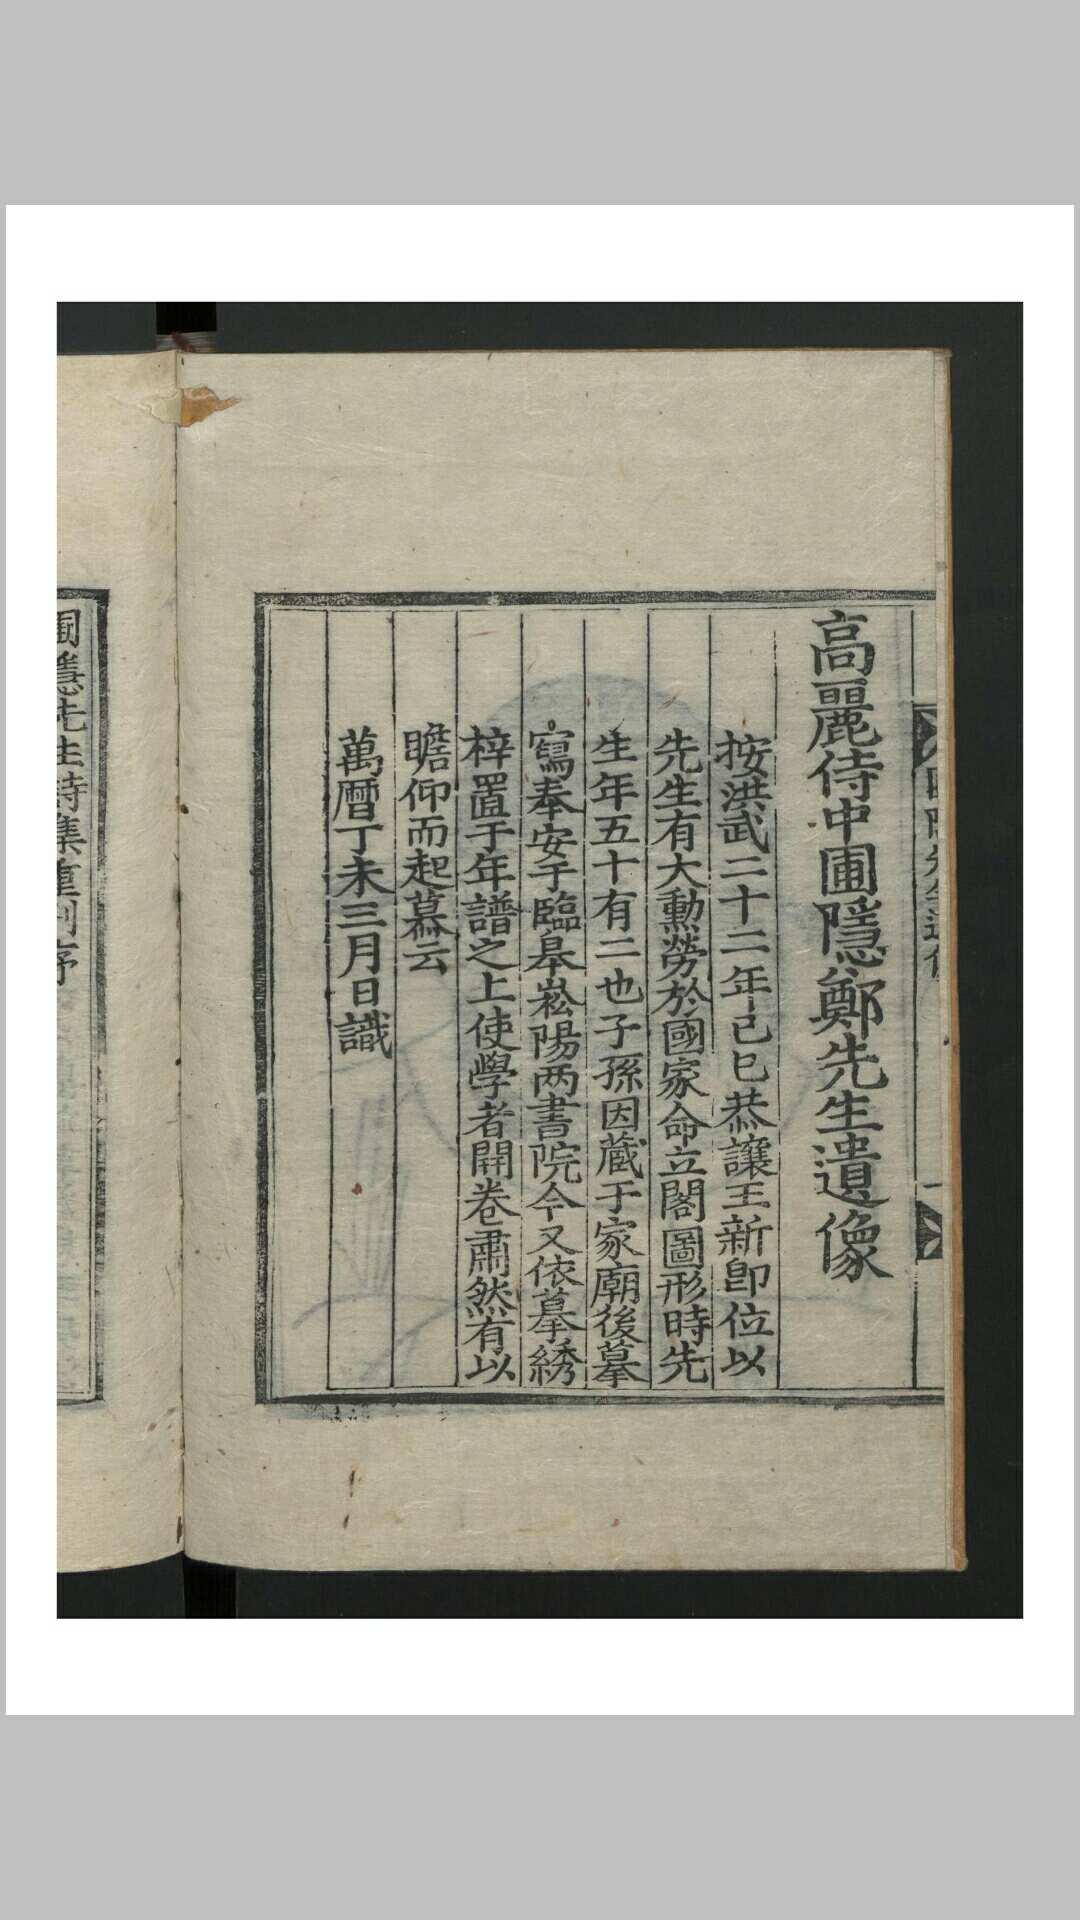 高麗侍中圃隱鄭先生遺像
按洪武二十二年己巳恭讓王新卽位以
先生有大勳勞於國家命立閣圖形時先
生年五十有二也子孫因藏于家廟後摹
寫奉安于臨皋崧陽两書院今又依摹綉
梓置于年譜之上使學者開卷肅然有以
瞻仰而起慕云
萬曆丁未三月日識
圃隱先生詩集重刊序